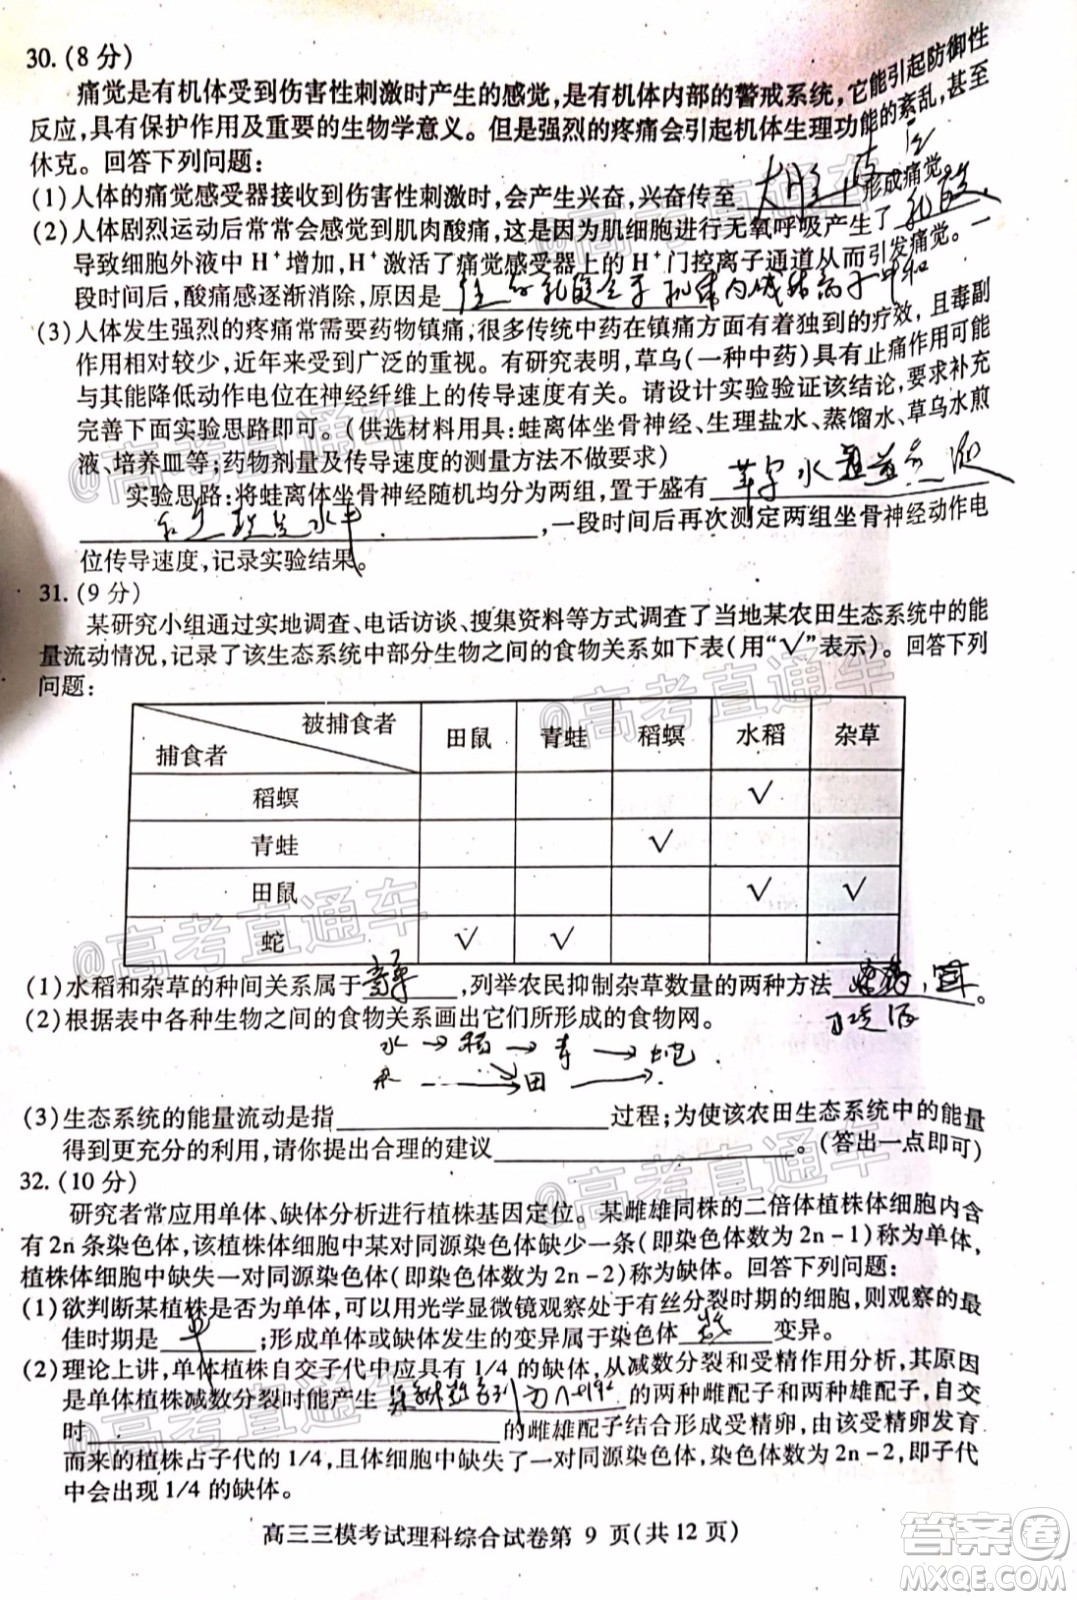 30.(8分)
痛觉是有机体受到伤害性刺激时产生的感觉,是有机体内部的警戒系统,它能引起防御性
反应,具有保护作用及重要的生物学意义。但是强烈的疼痛会引起机体生理功能的紊乱,甚至
休克。回答下列问题:
(1)人体的痛觉感受器接收到伤害性刺激时,会产生兴奋,兴奋传至 大脑皮层 形成痛觉。
(2)人体剧烈运动后常常会感觉到肌肉酸痛,这是因为肌细胞进行无氧呼吸产生了 乳酸,
导致细胞外液中H⁺增加,H⁺激活了痛觉感受器上的H⁺门控离子通道从而引发痛觉。一
段时间后,酸痛感逐渐消除,原因是
(3)人体发生强烈的疼痛常需要药物镇痛,很多传统中药在镇痛方面有着独到的疗效,且毒副
作用相对较少,近年来受到广泛的重视。有研究表明,草乌(一种中药)具有止痛作用可能
与其能降低动作电位在神经纤维上的传导速度有关。请设计实验验证该结论,要求补充
完善下面实验思路即可。(供选材料用具:蛙离体坐骨神经、生理盐水、蒸馏水、草乌水煎
液、培养皿等;药物剂量及传导速度的测量方法不做要求)
实验思路:将蛙离体坐骨神经随机均分为两组,置于盛有
和生理盐水中 ,一段时间后再次测定两组坐骨神经动作电
位传导速度,记录实验结果。
31.(9分)
某研究小组通过实地调查、电话访谈、搜集资料等方式调查了当地某农田生态系统中的能
量流动情况,记录了该生态系统中部分生物之间的食物关系如下表(用“√”表示)。回答下列
问题:
被捕食者 捕食者 田鼠 青蛙 稻螟 水稻 杂草
稻螟 √
青蛙 √
田鼠 √ √
蛇 √ √
(1)水稻和杂草的种间关系属于 竞争 ,列举农民抑制杂草数量的两种方法 。
(2)根据表中各种生物之间的食物关系画出它们所形成的食物网。
水→稻→青→蛇
→田→
(3)生态系统的能量流动是指 过程;为使该农田生态系统中的能量
得到更充分的利用,请你提出合理的建议 。(答出一点即可)
32.(10分)
研究者常应用单体、缺体分析进行植株基因定位。某雌雄同株的二倍体植株体细胞内含
有2n条染色体,该植株体细胞中某对同源染色体缺少一条(即染色体数为2n-1)称为单体,
植株体细胞中缺失一对同源染色体(即染色体数为2n-2)称为缺体。回答下列问题:
(1)欲判断某植株是否为单体,可以用光学显微镜观察处于有丝分裂时期的细胞,则观察的最
佳时期是 中 ;形成单体或缺体发生的变异属于染色体 数 变异。
(2)理论上讲,单体植株自交子代中应具有1/4的缺体,从减数分裂和受精作用分析,其原因
是单体植株减数分裂时能产生 的两种雌配子和两种雄配子,自交
时 的雌雄配子结合形成受精卵,由该受精卵发育
而来的植株占子代的1/4,且体细胞中缺失了一对同源染色体,染色体数为2n-2,即子代
中会出现1/4的缺体。
高三三模考试理科综合试卷第 9 页(共12页)
@高考直通车
@高考直通车
@高考直通车
@高考直通车
@高考直通车
@高考直通车
答案卷
MXQE.COM